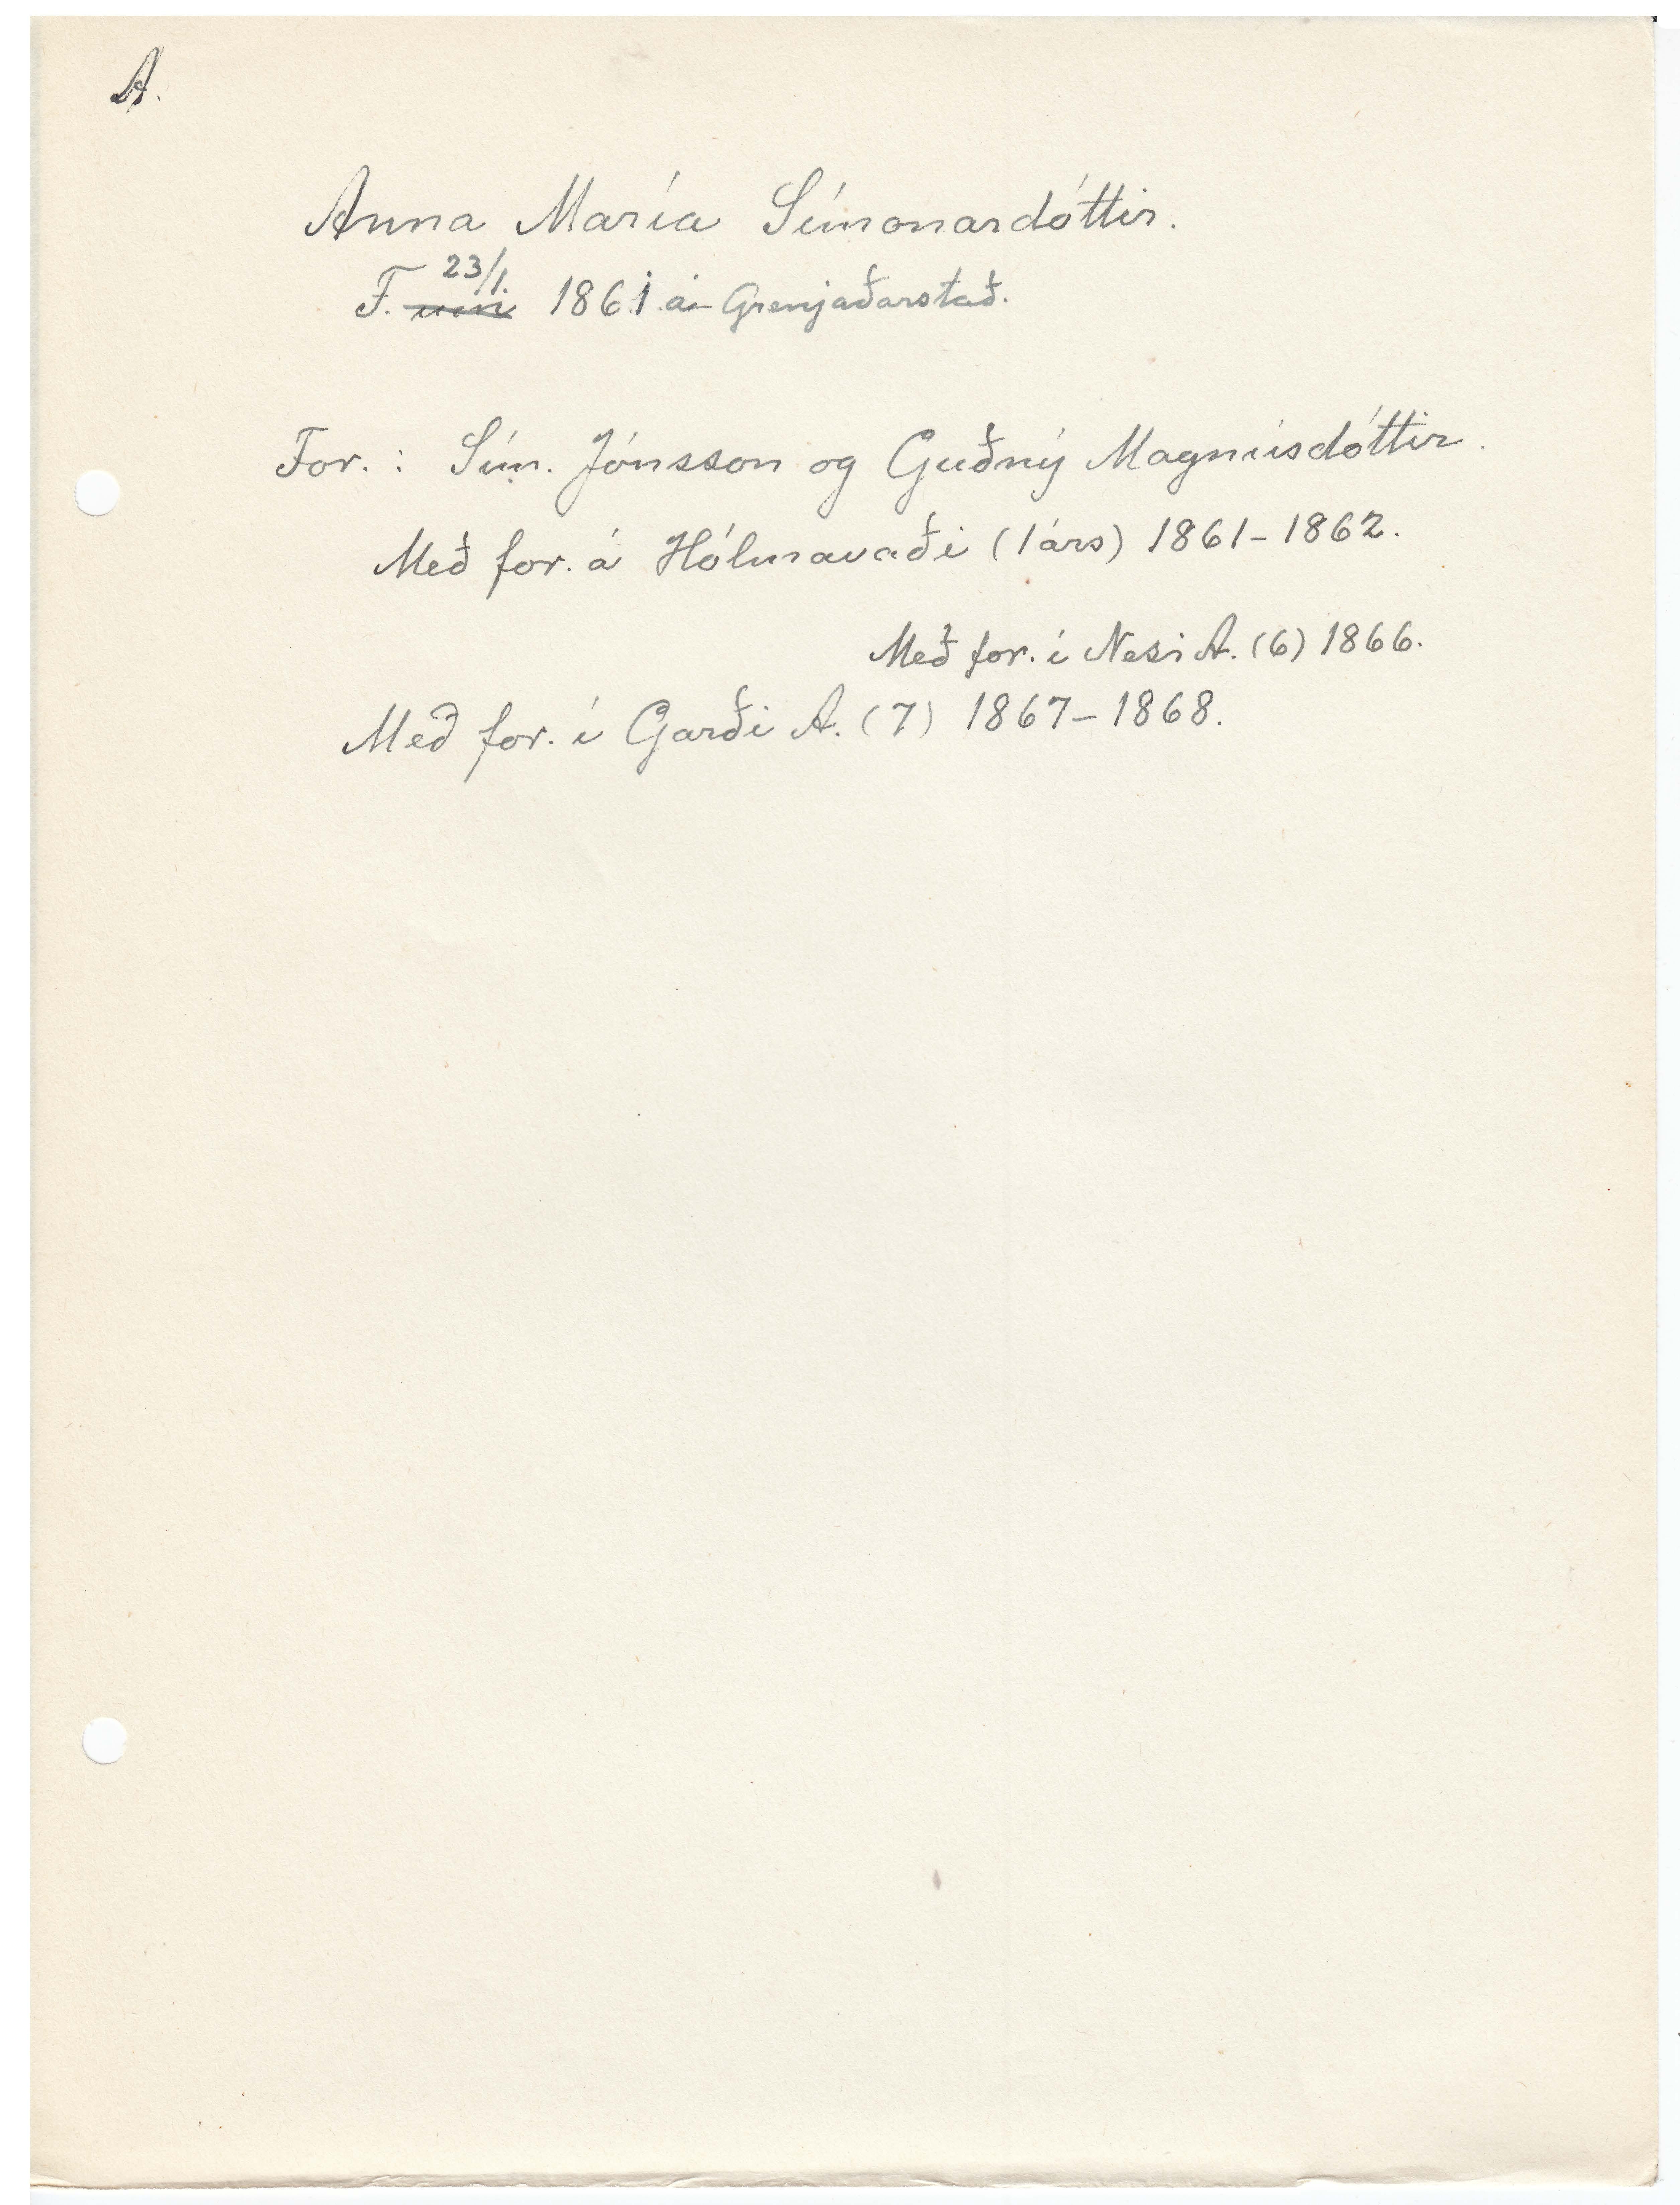 A.
Anna María Símonardóttir.
F. 23/1. um 1861 á Grenjaðarstað.
For. : Sím. Jónsson og Guðný Magnúsdóttir.
Með for. á Hólmavaði (1 árs) 1861-1862.
Með for. í Nesi A. (6) 1866.
Með for. í Garði A. (7) 1867-1868.